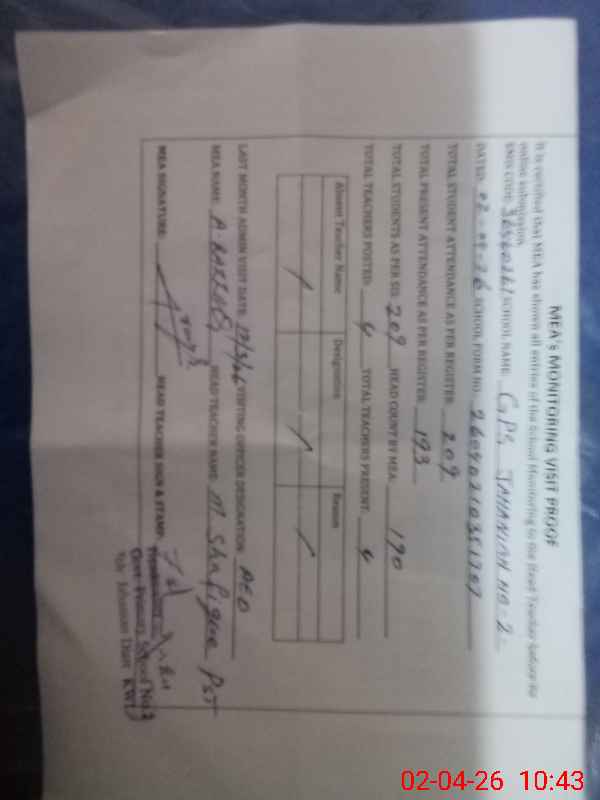 MEA's MONITORING VISIT PROOF
It is certified that MEA has shown all entries of the School Monitoring to the Head Teacher before the
online submission
EMIS CODE: SCHOOL NAME: GPS JAHANIAN NO. 2
DATED: 02-04-26 SCHOOL FORM NO.
TOTAL STUDENT ATTENDANCE AS PER REGISTER: 209
TOTAL PRESENT ATTENDANCE AS PER REGISTER: 193
TOTAL STUDENTS AS PER SIS: 209 HEAD COUNT BY MEA: 190
TOTAL TEACHERS POSTED: 4 TOTAL TEACHERS PRESENT: 4
Absent Teacher Name Designation Reason
LAST MONTH ADMIN VISIT DATE: VISITING OFFICER DESIGNATION: AEO
MEA NAME: HEAD TEACHER NAME: M Shafique PST
MEA SIGNATURE: HEAD TEACHER SIGN & STAMP:
Govt. Primary School No.2
Jahanian Distt KWL
02-04-26 10:43